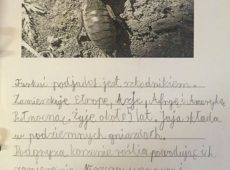 Turkuć podjadek jest szkodnikiem.
Zamieszkuje Europę, Azję, Afrykę i Amerykę
Północną. Żyje około 2 lat. Jaja składa
w podziemnych gniazdach.
Podgryza korzenie roślin powodując ich